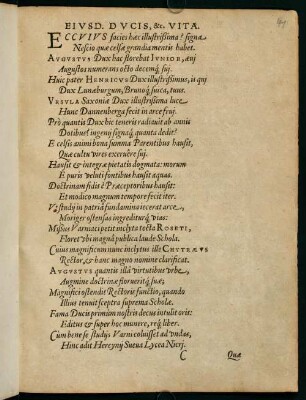 EIVSD. DVCIS, &c. VITA.
ECCVIVS facies hæc illustrissima? signa
Nescio quæ celsæ grandia mentis habet.
AVGVSTVS Dux hac florebat IVNIOR, anj
Augustus numerans octo decemq́ suj.
Huic pater HENRICVS Dux illustrissimus, is quj
Dux Lunæburgum, Brunoq́ sueca, tuus.
VRSVLA Saxoniæ Dux illustrissima luce
Hunc Dannenberga fecit in arce fruj.
Pro quantis Dux hic teneris radiauit ab annis
Dotibus! ingenij signaq́ quanta dedit!
E celsis animi bona summa Parentibus hausit,
Quæ cultu vires exeruêre suj.
Hausit & integræ pietatis dogmata: morum
E puris veluti fontibus hausit aquas.
Doctrinam fidit è Præceptoribus hausit:
Et modico magnum tempore fecit iter.
Vt studij in patria fundamina iecerat arce,
Moriger ostensas ingrediturq́ vias:
Missus Varniaci petit inclyta tecta ROSETI,
Floret vbi magna publica laude Schola.
Cuius magnificum nunc inclytus ille CHYTRÆVS
Rector, & hanc magno nomine clarificat.
AVGVSTVS quantis illâ virtutibus vrbe,
Augmine doctrinæ floreritq́ suæ,
Magnifici ostendit Rectoris functio, quando
Illius tenuit sceptra suprema Scholæ.
Fama Ducis promium nostri decus intulit oris:
Editus & super hoc munere, req́ liber.
Cum bene se studijs Varni coluisset ad vndas,
Hinc adit Hercynij Sueua Lycea Nicrj.
C Quæ